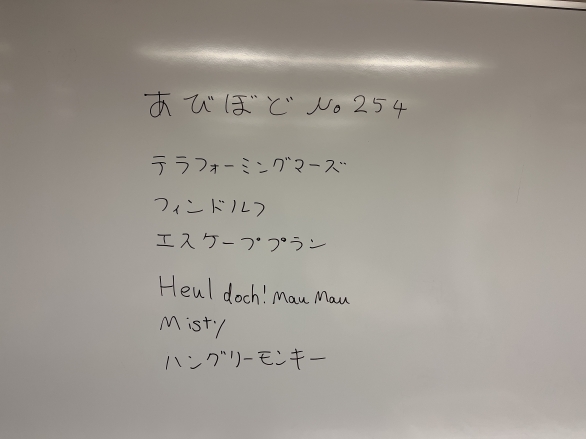 あびぼど No 254
テラフォーミングマーズ
フィンドルフ
エスケーププラン
Heul doch! Mau Mau
Misty
ハングリーモンキー